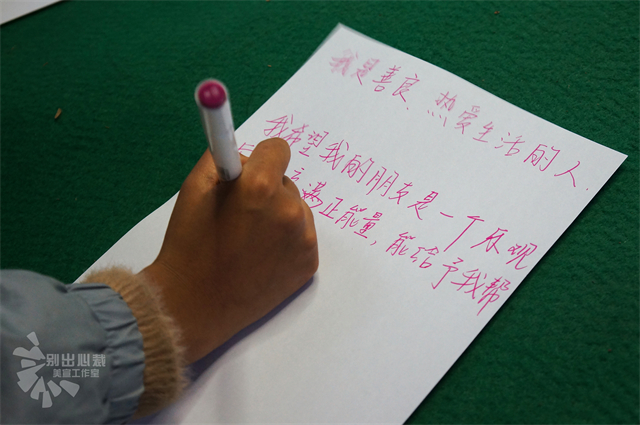 我是善良、热爱生活的人.
我希望我的朋友是一个乐观
满正能量，能给予我帮
别出心裁
美宣工作室